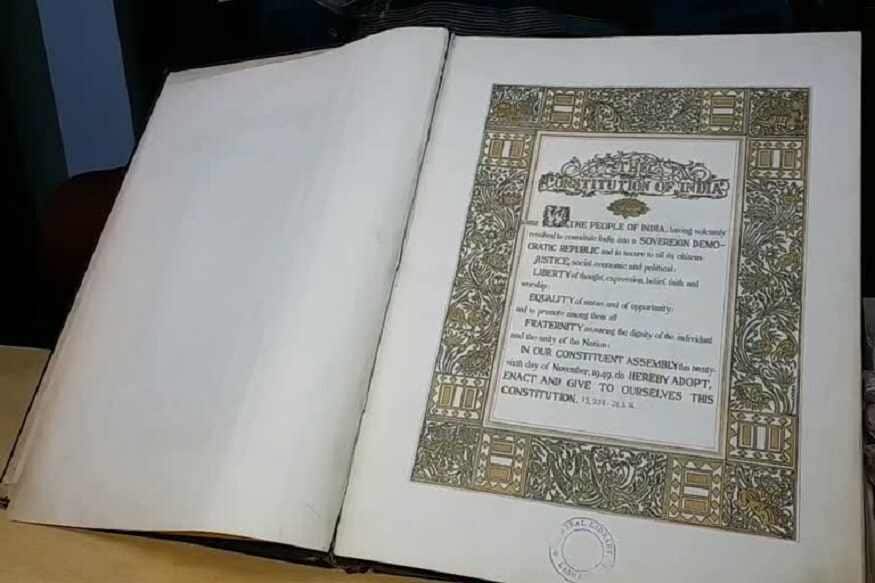 THE
CONSTITUTION OF INDIA
WE, THE PEOPLE OF INDIA, having solemnly
resolved to constitute India into a SOVEREIGN DEMO-
CRATIC REPUBLIC and to secure to all its citizens:
JUSTICE, social, economic and political;
LIBERTY of thought, expression, belief, faith and
worship;
EQUALITY of status and of opportunity;
and to promote among them all
FRATERNITY assuring the dignity of the individual
and the unity of the Nation;
IN OUR CONSTITUENT ASSEMBLY this twenty-
sixth day of November, 1949, do HEREBY ADOPT,
ENACT AND GIVE TO OURSELVES THIS
CONSTITUTION.
LIBRARY